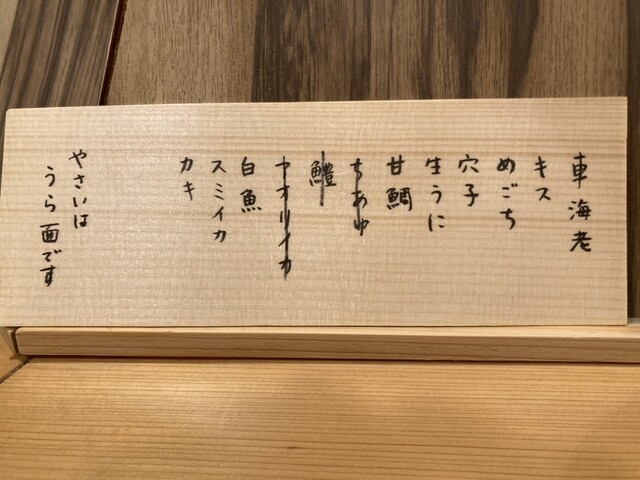 車海老
キス
めごち
穴子
生うに
甘鯛
ちあゆ
鱧
アオリイカ
白魚
スミイカ
カキ
やさいは
うら面です